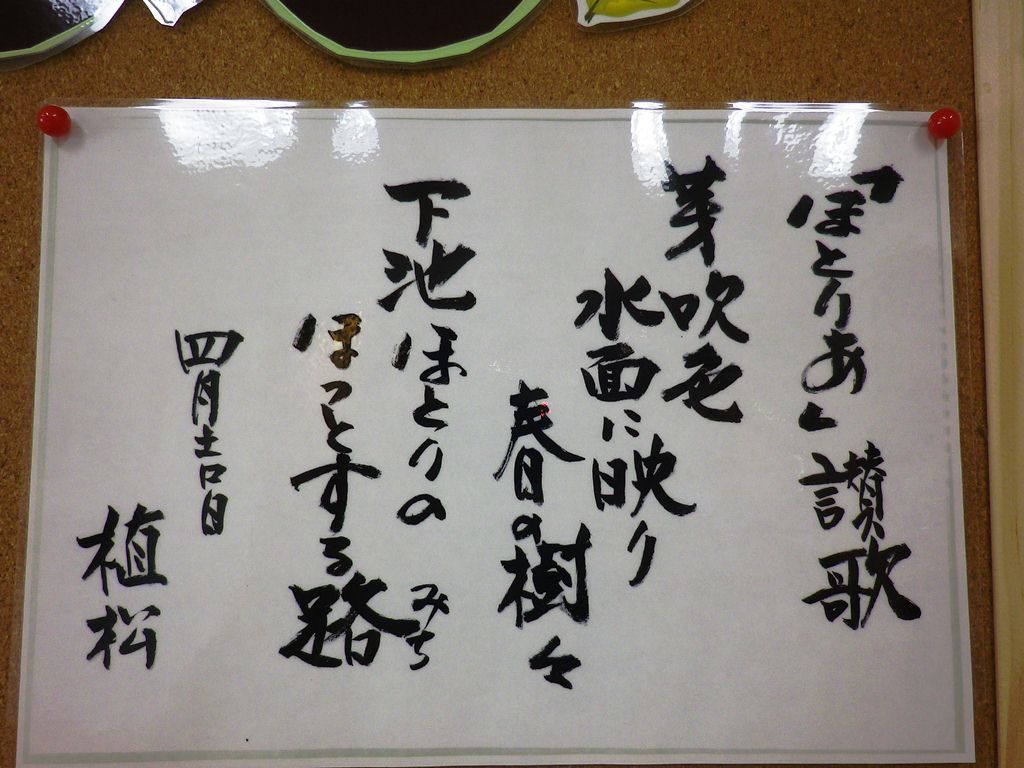 「ほとりあ」讃歌
芽吹色
水面に映り
春日の樹々
下池ほとりの
ほっとする路
みち
四月吉日
植松